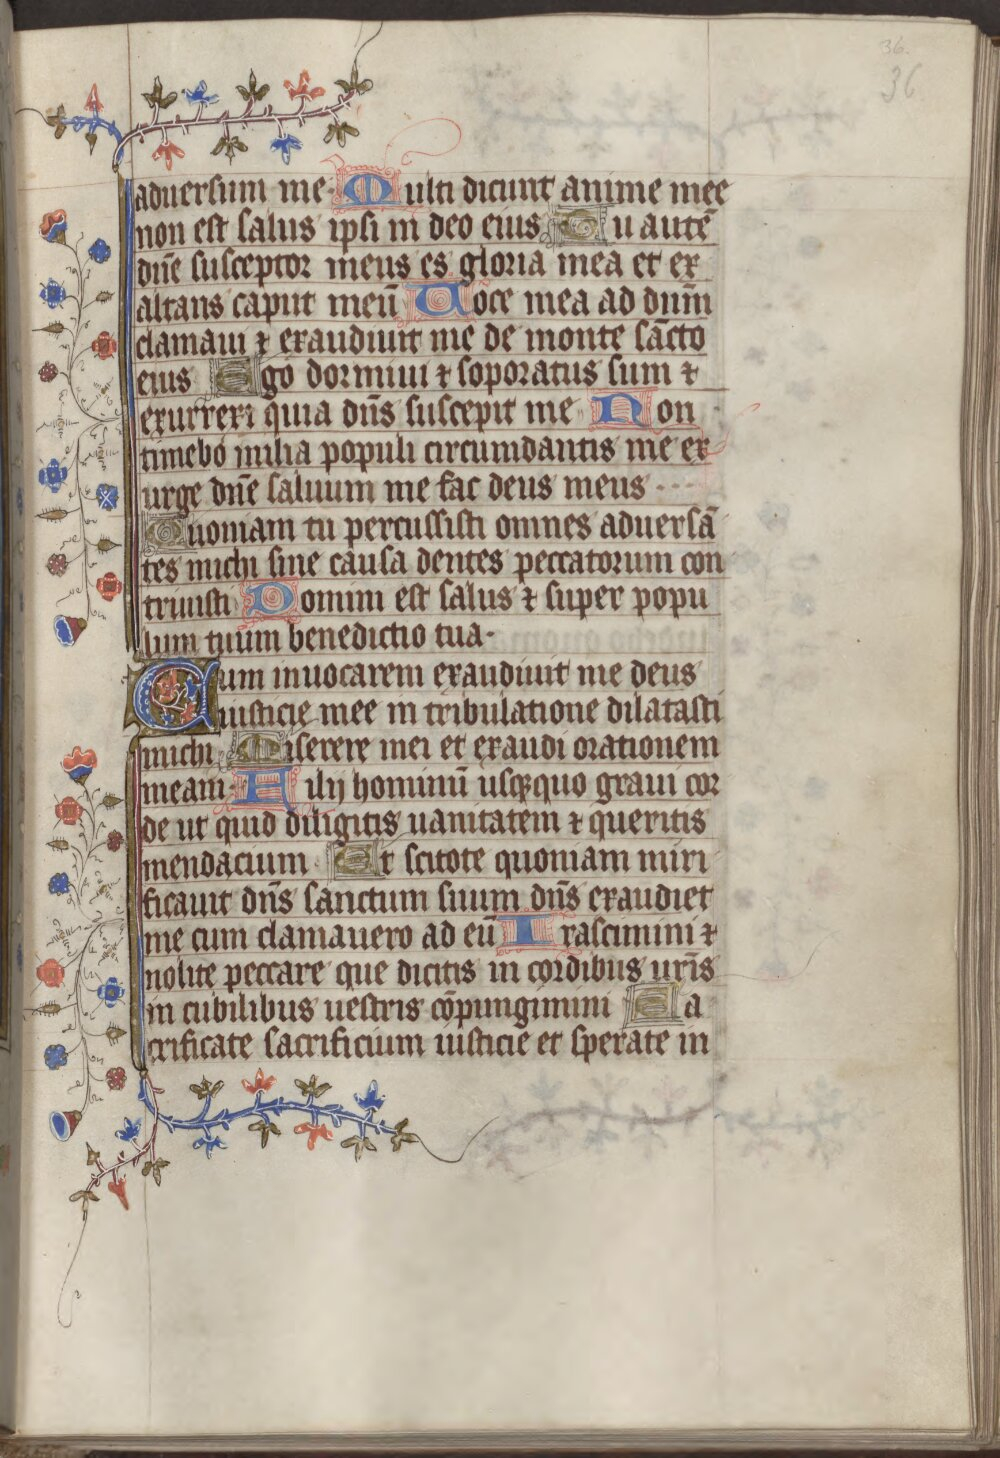 36.
36
aduersum me Multi dicunt anime mee
non est salus ipsi in deo eius Tu autē
dn̄e susceptor meus es gloria mea et ex
altans caput meū Uoce mea ad dn̄m
clamaui ⁊ exaudiuit me de monte sācto
eius Ego dormiui ⁊ soporatus sum ⁊
exurrexi quia dn̄s suscepit me Non
timebo milia populi circumdantis me ex
urge dn̄e saluum me fac deus meus
Quoniam tu percussisti omnes aduersā
tes michi sine causa dentes peccatorum con
triuisti Domini est salus ⁊ super popu
lum tuum benedictio tua
Cum inuocarem exaudiuit me deus
iusticie mee in tribulatione dilatasti
michi Miserere mei et exaudi orationem
meam Filij hominū usq̨quo graui cor
de ut quid diligitis uanitatem ⁊ queritis
mendacium Et scitote quoniam miri
ficauit dn̄s sanctum suum dn̄s exaudiet
me cum clamauero ad eū Irascimini ⁊
nolite peccare que dicitis in cordibus ur̄is
in cubilibus uestris cōpungimini Sa
crificate sacrificium iusticie et sperate in